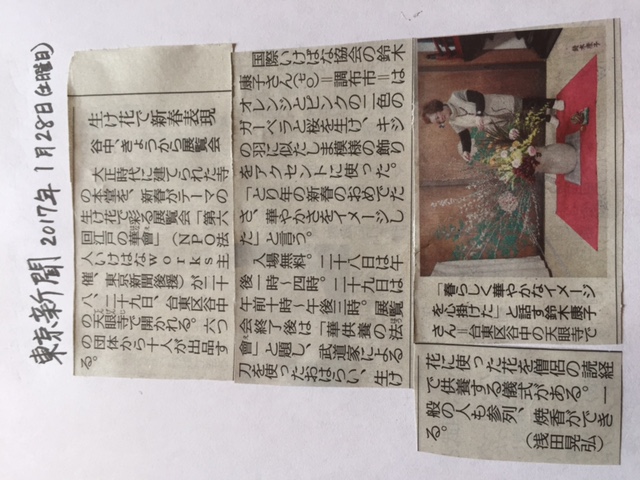 東京新聞 2017年1月28日(土曜日)
生け花で新春表現
谷中きょうから展覧会
大正時代に建てられた寺
の本堂を、新春がテーマの
生け花で彩る展覧会「第六
回江戸の華會」(NPO法
人いけはなworks主
催、東京新聞後援)が二十
八、二十九日、台東区谷中
の天眼寺で開かれる。六つ
の団体から十人が出品す
る。
国際いけばな協会の鈴木
康子さん(七〇)=調布市=は
オレンジとピンクの二色の
ガーベラと桜を生け、キジ
の羽に似たしま模様の飾り
をアクセントに使った。
「とり年の新春のおめでた
さ、華やかさをイメージし
た」と言う。
入場無料。二十八日は午
後一時~四時。二十九日は
午前十時~午後三時。展覧
会終了後は「華供養の法
會」と題し、武道家による
刀を使ったおはらい、生け
花に使った花を僧侶の読経
で供養する儀式がある。一
般の人も参列、焼香ができ
る。
(浅田晃弘)
「春らしく華やかなイメージ
を心掛けた」と話す鈴木康子
さん=台東区谷中の天眼寺で